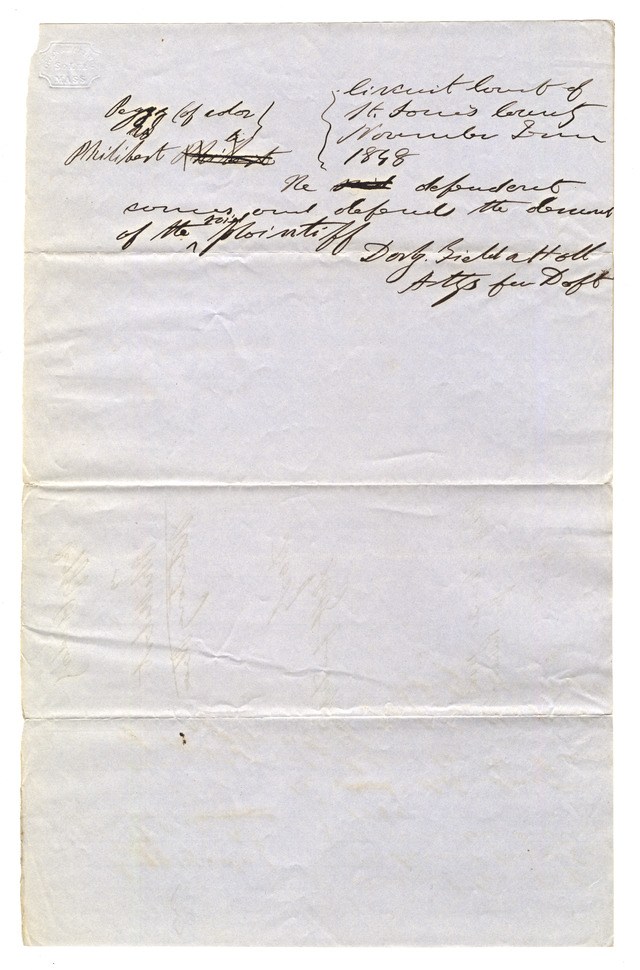 Peggy (of color)
vs
Philibert
Circuit Court of
St. Louis County
November Term
1848
The defendent
comes and defends the demand
of the said plaintiff
Field & Hall
Attys for Deft